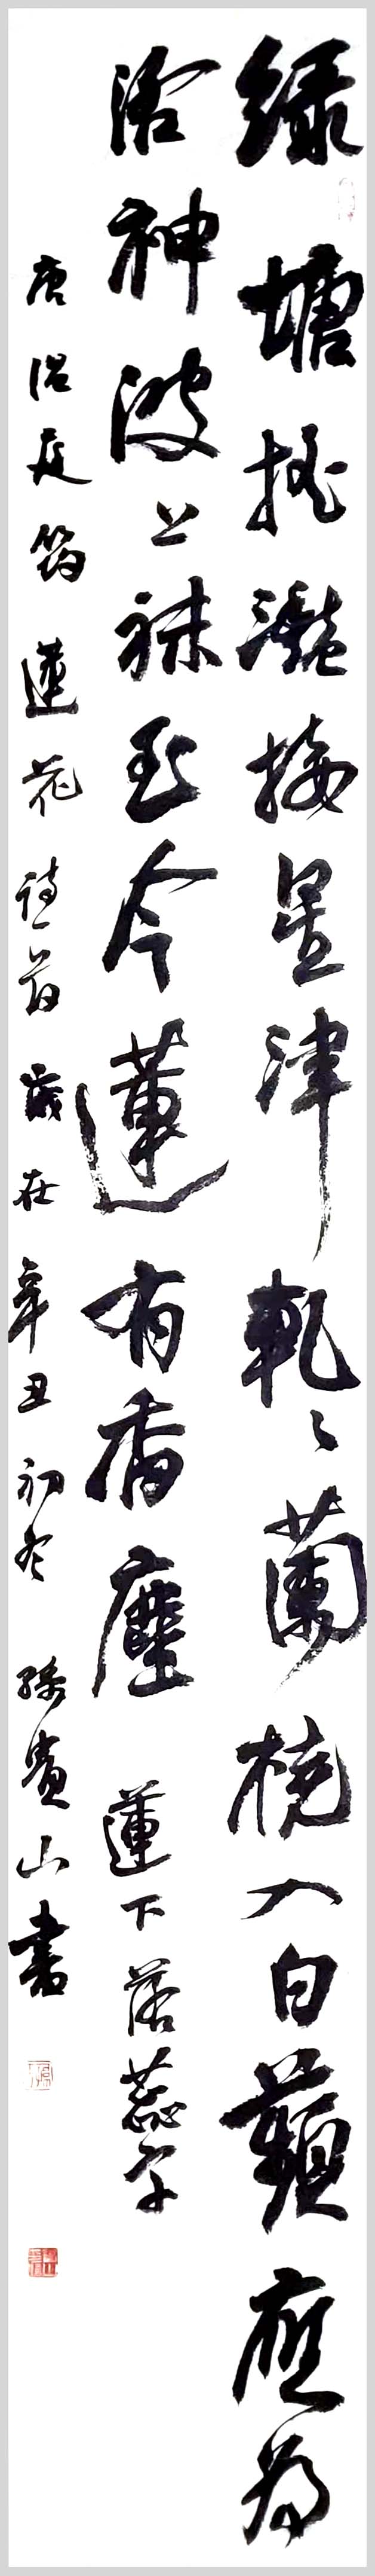 绿塘摇灩接星津軋〻蘭橈入白蘋應为
洛神波上袜至今蓮有香塵 蓮下落蕊字
唐温庭筠蓮花詩首歲在辛丑初冬 孫賓山書